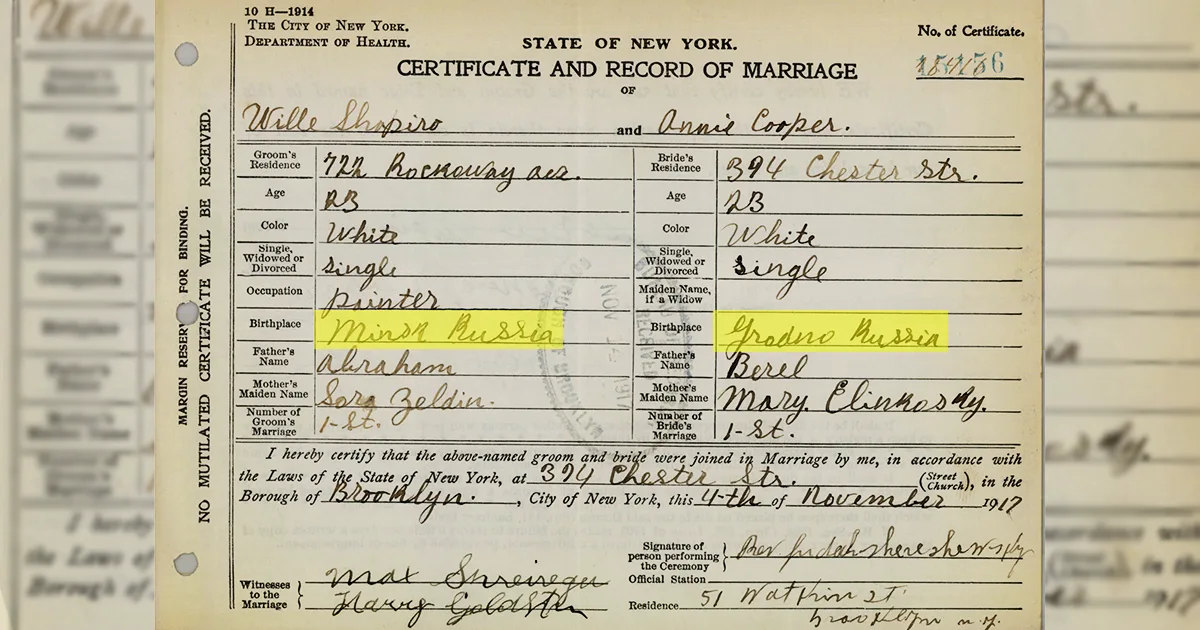 10 H—1914
THE CITY OF NEW YORK.
DEPARTMENT OF HEALTH.
No. of Certificate.
STATE OF NEW YORK.
CERTIFICATE AND RECORD OF MARRIAGE
OF
Wille Shapiro and Annie Cooper.
Groom's Residence 722 Rockaway ave. Bride's Residence 394 Chester Str.
Age 23 Age 23
Color White Color White
Single, Widowed or Divorced single Single, Widowed or Divorced single
Occupation painter Maiden Name, if a Widow
Birthplace Minsk Russia Birthplace Grodno Russia
Father's Name Abraham Father's Name Berel
Mother's Maiden Name Sora Zeldin. Mother's Maiden Name Mary.
Number of Groom's Marriage 1-St. Number of Bride's Marriage 1-St.
I hereby certify that the above-named groom and bride were joined in Marriage by me, in accordance with
the Laws of the State of New York, at 394 Chester Str. (Street Church), in the
Borough of Brooklyn. , City of New York, this 4-th of November 1917
Signature of person performing the Ceremony Rev Judah
Official Station
Witnesses to the Marriage Max
Harry Goldstin
Residence 51 Watkin st.
Brooklyn n.y.
MARGIN RESERVED FOR BINDING.
NO MUTILATED CERTIFICATE WILL BE RECEIVED.